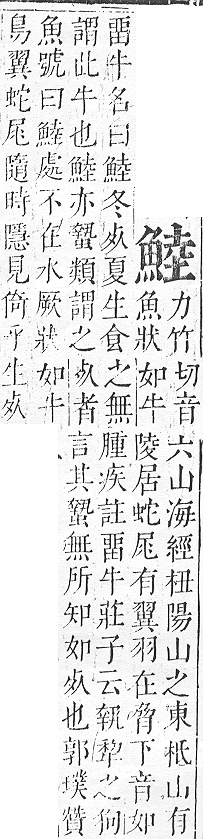 鯥
力竹切音六山海經杻陽山之東柢山有
魚狀如牛陵居蛇尾有翼羽在脅下音如
畱牛名曰鯥冬死夏生食之無腫疾註畱牛莊子云執犂之狗
謂此牛也鯥亦蟄類謂之死者言其蟄無所知如死也郭璞贊
魚號曰鯥處不在水厥狀如牛
鳥翼蛇尾隨時隱見倚乎生死